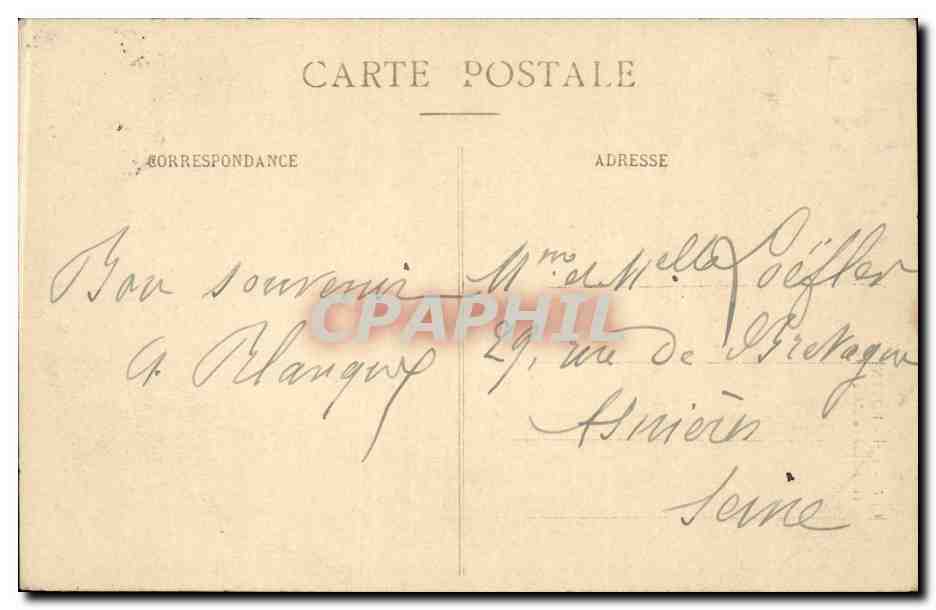 CARTE POSTALE
CORRESPONDANCE
ADRESSE
Bon souvenir
Mme et Melle Loëffler
29, rue de Bretagne
Asnières
Seine
CPAPHIL